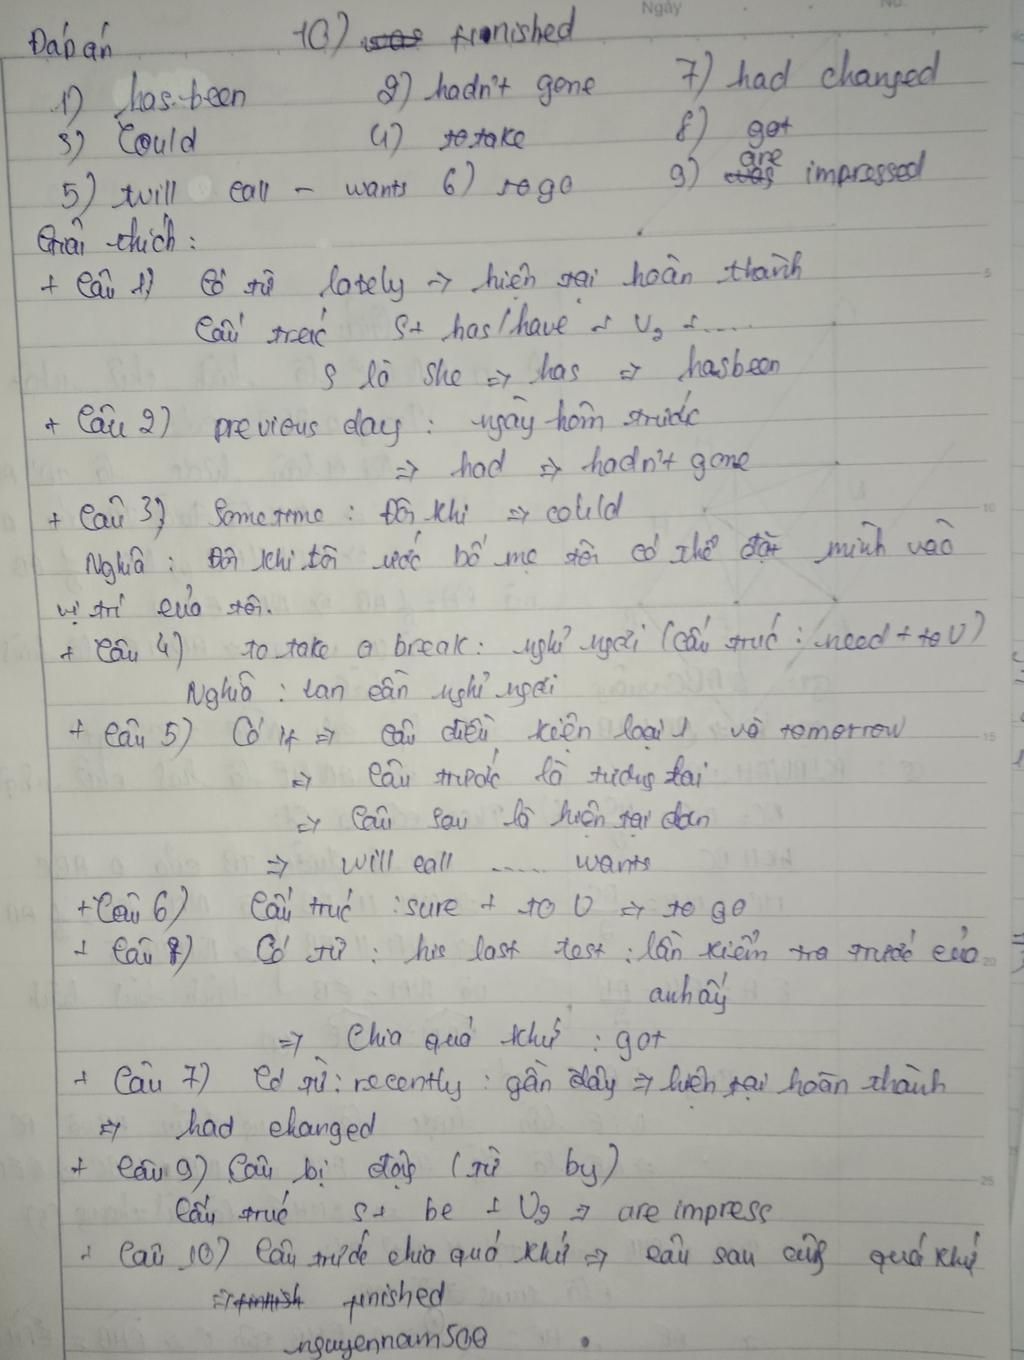 Ngày No.
Đáp án 10) was finished
1) has been 2) hadn't gone 7) had changed
3) Could 4) to take 8) got
5) will call - wants 6) to go 9) was are impressed
Giải thích:
+ Câu 1) Có từ lately => hiện tại hoàn thành
Cấu trúc S + has/have + V3 + .....
S là She => has => has been
+ Câu 2) previous day : ngày hôm trước
=> had => hadn't gone
+ Câu 3) Sometime : Đôi khi => could
Nghĩa : Đôi khi tôi ước bố mẹ tôi có thể đặt mình vào
vị trí của tôi.
+ Câu 4) to take a break : nghỉ ngơi (cấu trúc : need + to V)
Nghĩa : Lan cần nghỉ ngơi
+ Câu 5) Có If => câu điều kiện loại 1 và tomorrow
=> Câu trước là tương lai
=> Câu sau là hiện tại đơn
=> will call ..... wants
+ Câu 6) Cấu trúc : sure + to V => to go
+ Câu 8) Có từ : his last test : lần kiểm tra trước của
anh ấy
=> Chia quá khứ : got
+ Câu 7) Có từ : recently : gần đây => hiện tại hoàn thành
=> had changed
+ Câu 9) Câu bị động (từ by)
Cấu trúc S + be + V3 => are impress
+ Câu 10) Câu trước chia quá khứ => câu sau cũng quá khứ
=> finish finished
nguyennam500